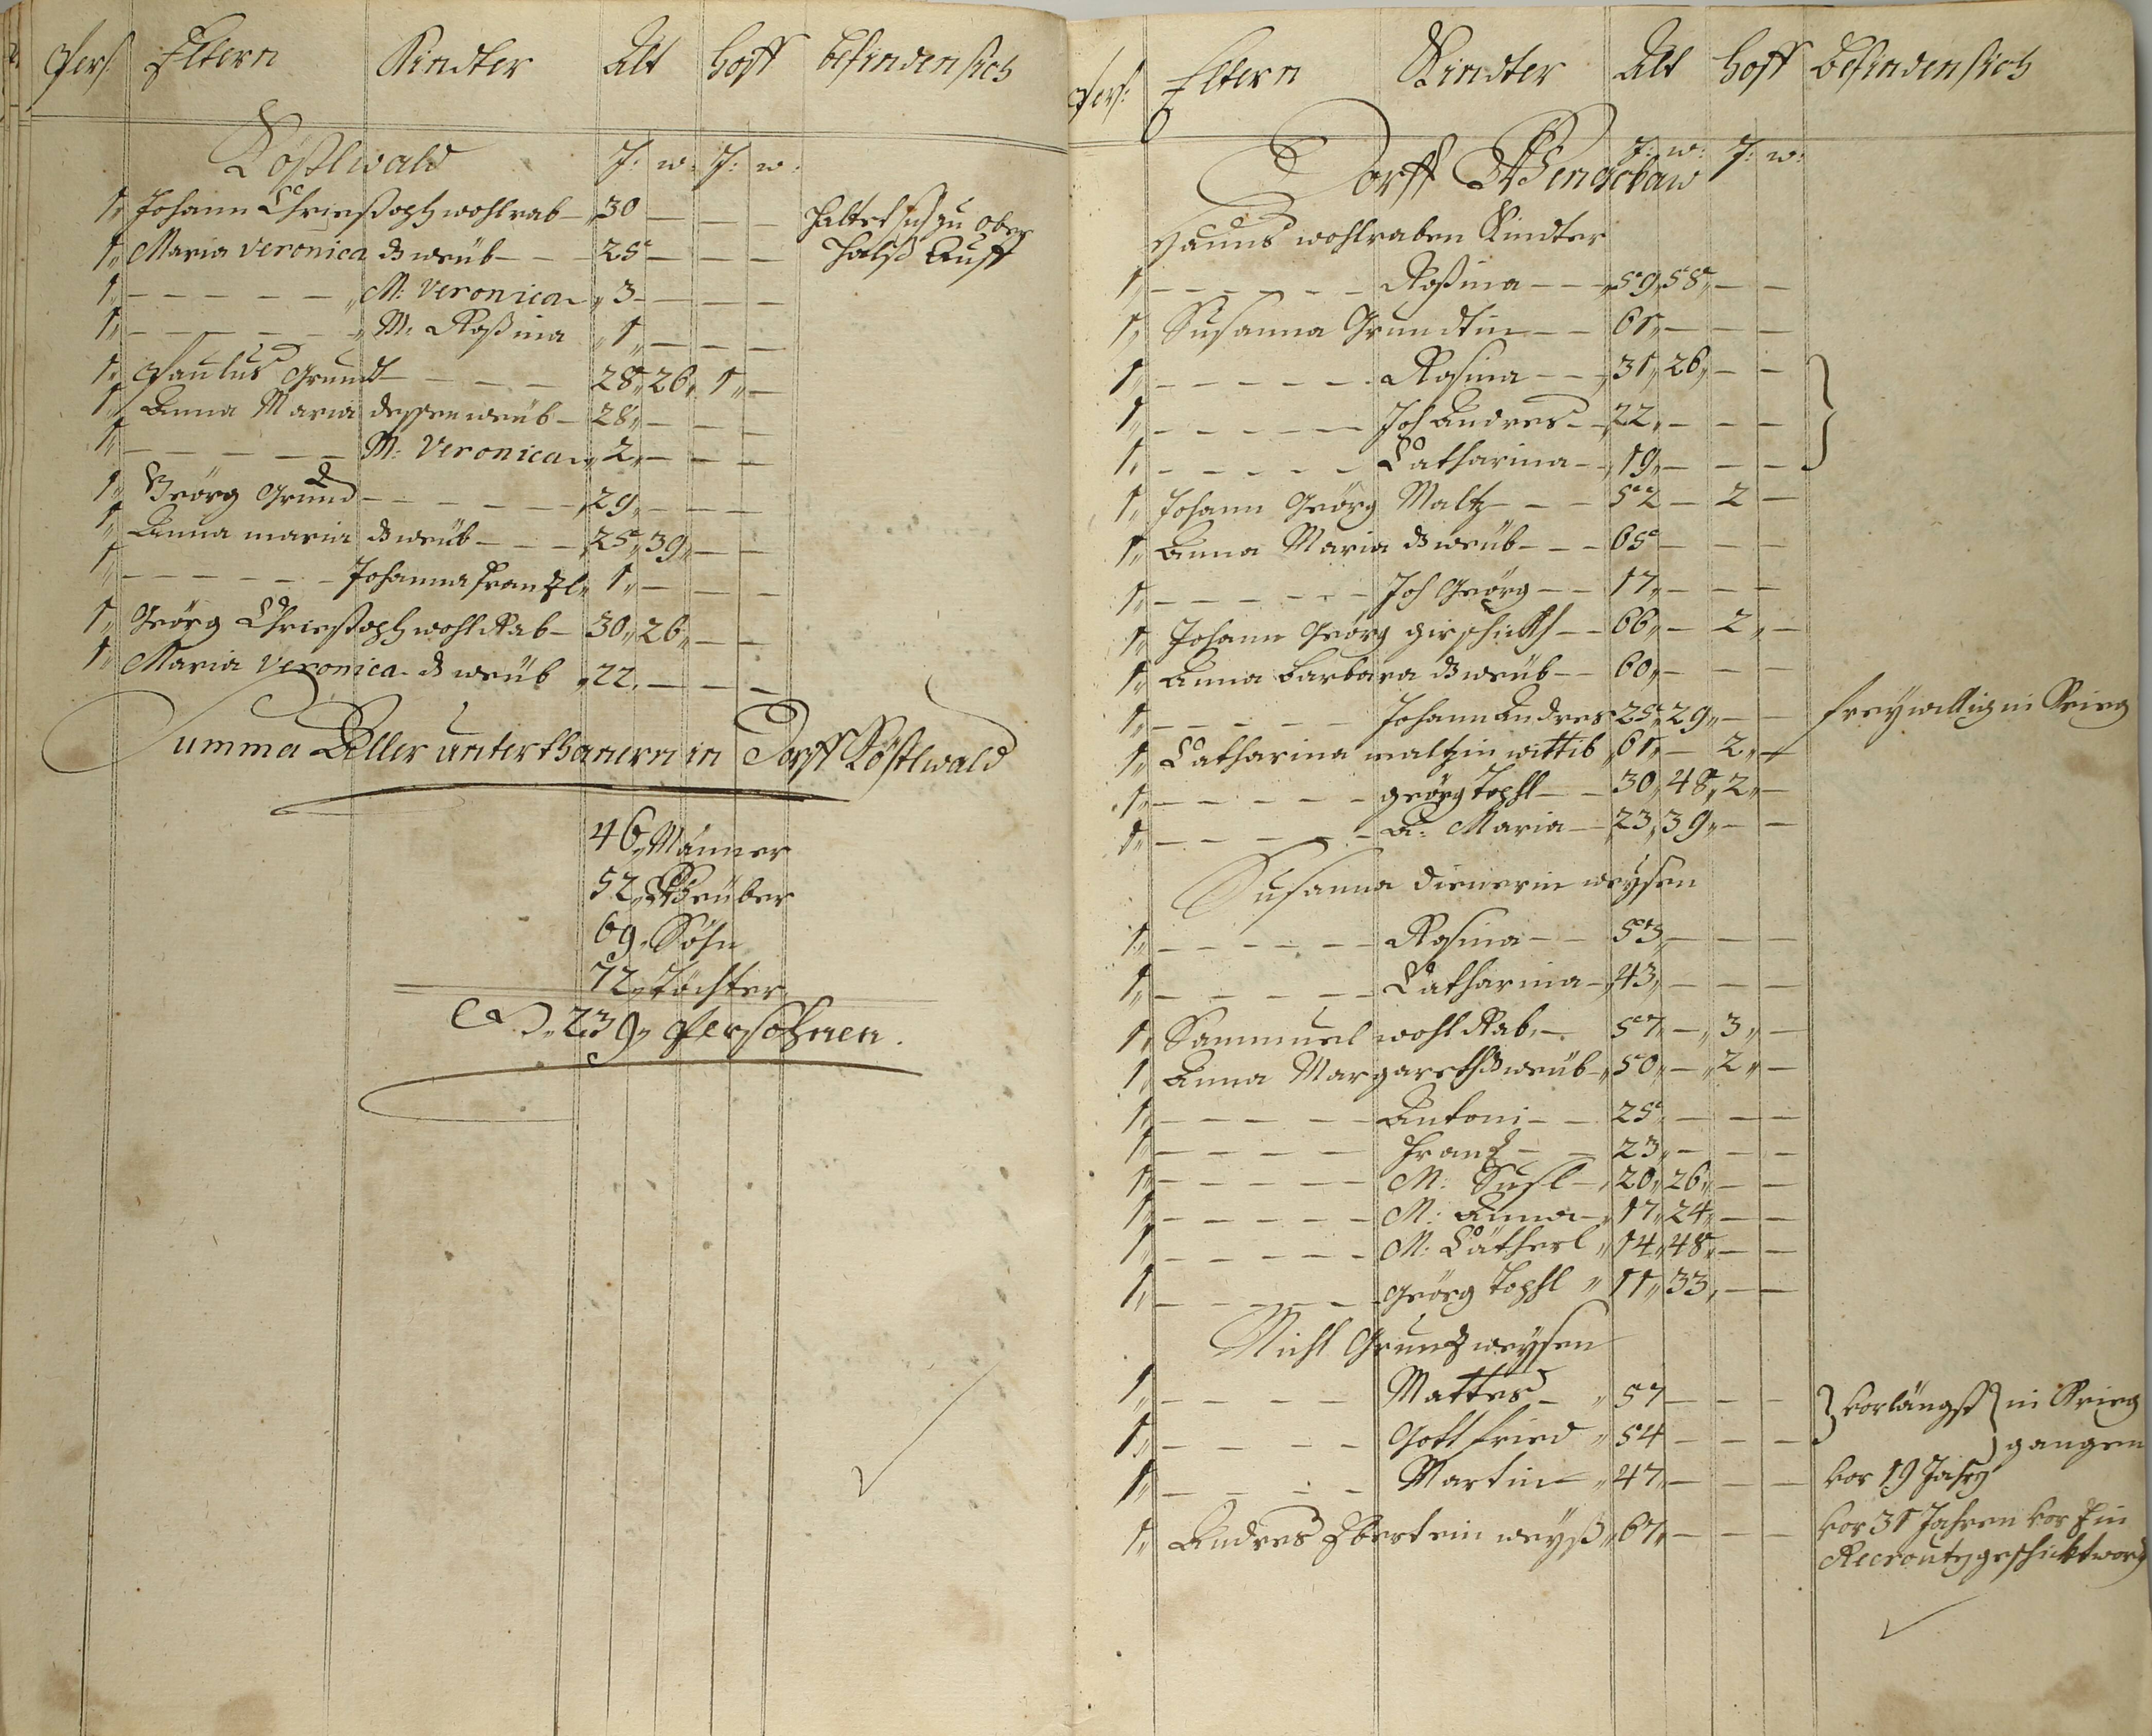 Pers: Eltern Kindter Alt Hoff befinden sich
Köstlwald J: w: J: w:
1 Johann Christoph wohlrab 30
haltet sich zu ober
1 Maria Veronica d weüb 25
halß auff
1 M: Veronica 3
1 M: Rosina 1
1 Paulus Grundt 28 26 1
1 Anna Maria dessen weüb 28
1 M: Veronica 2
1 Geörg Grund 29
1 Anna maria d weüb 25 39
1 Johanna franzl 1
1 Geörg Christoph wohlRab 30 26
1 Maria Veronica d weüb 22
Summa Aller unterthanern in Dorff Köstlwald
46 Männer
52 Weüber
69 Söhn
72 Töchter
239 Persohnen.
Pers: Eltern Kindter Alt Hoff Befinden sich
J: w: J: w:
Dorff
Hanns wohlraben Kindter
1 Rosina 59 58
1 Susanna Grundtin 61
1 Rosina 31 26
1 Joh Andres 22
1 Catharina 19
1 Johann Geörg Maltz 52 2
1 Anna Maria d weüb 65
1 Joh Geörg 17
1 Johann Geörg 66 2
1 Anna Barbara d weüb 60
1 Johann Andres 25 29 freywillig in Krieg
1 Catharina maltzin wittib 61 2
1 geörg Tophl 30 48 2
1 A: Maria 23 39
Susanna dienerin weysen
1 Rosina 53
1 Catharina 43
1 Sammuel wohlRab 57 3
1 Anna Margareth d weüb 50 2
1 Antoni 25
1 Franz 23
1 M: Susl 20 26
1 M: Anna 17 24
1 M: Cätherl 14 48
1 Geörg Tophl 11 33
Michl Grundt weysen
1 Mattes 57 vorlängst in Krieg
1 Gottfried 54 gangen
1 Martin 47 vor 19 Jahr
1 Andres ein weyß 67 vor 31 Jahren vor Ein
Recrouten geschickt word